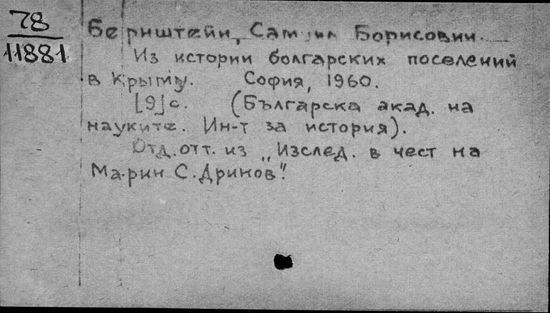 78
11881
Бернштейн, Самуил Борисович.
Из истории болгарских поселений
в Крыму. София, 1960.
[9]с. (Българска акад. на
науките. Ин-т за история).
Отд.отт. из „Изслед. в чест на
Марин С.Дринов".